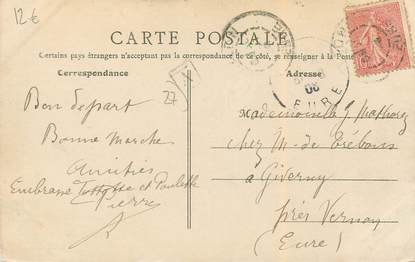 12 €
CARTE POSTALE
Certains pays étrangers n'acceptant pas la correspondance de ce côté, se renseigner à la Poste
Correspondance
Adresse
27
06
EURE
Bon départ
Bonne marche
Amitiés
Embrasse et Paulette
Pierre
Mademoiselle
chez M. de Trébons
à Giverny
près Vernon
(Eure)